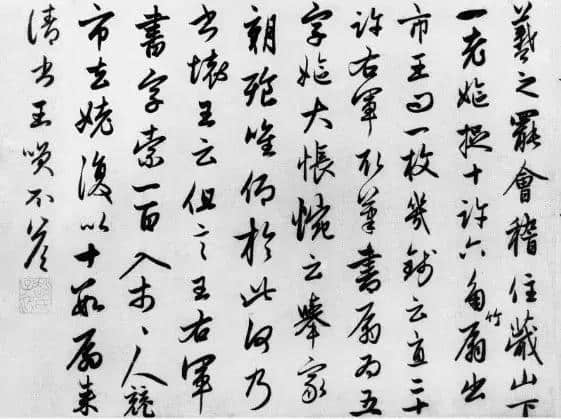 羲之罷會稽住蕺山下
一老嫗捉十許六角竹扇出
市王問一枚幾錢云直二十
許右軍取筆書扇為五
字嫗大悵惋云舉家
朝飱唯仰於此何乃
書壞王云但言王右軍
書字索一百入市々人競
市去姥復以十數扇來
請書王笑不答